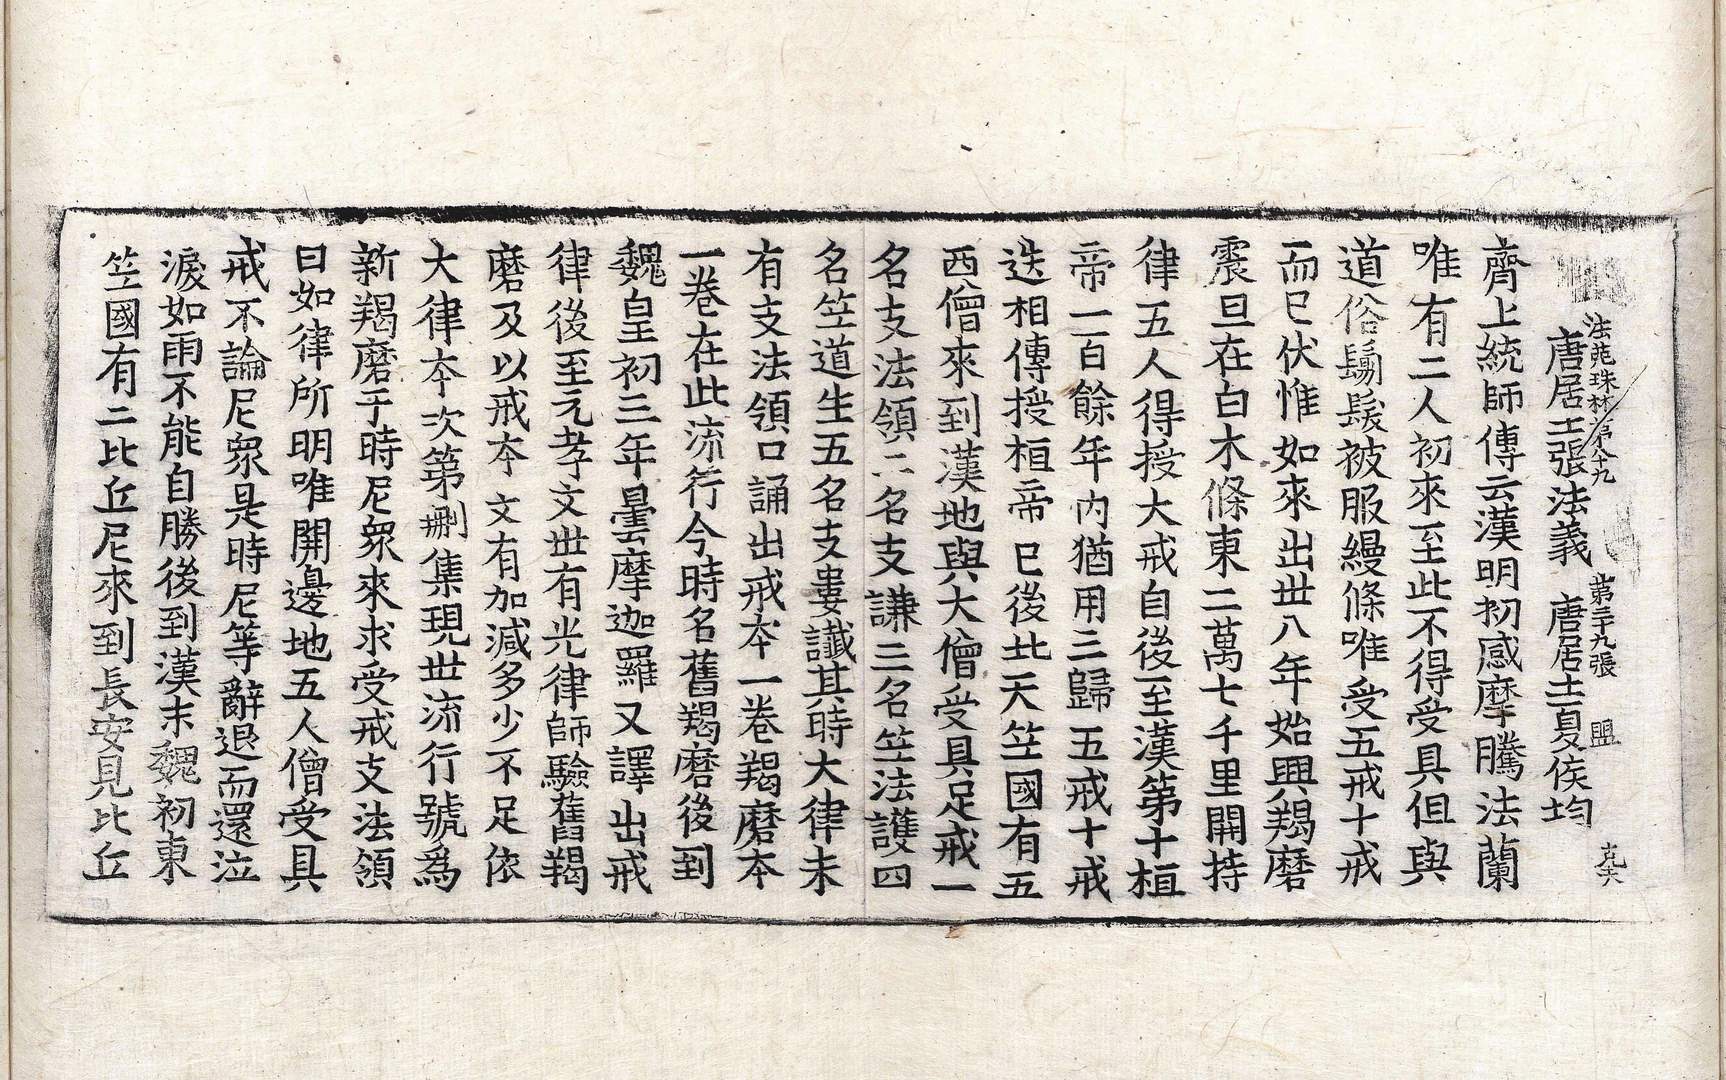 法苑珠林第八十九　第三十九張　盟
唐居士張法義　唐居士夏侯均
齊上統師傳云漢明初感摩騰法蘭
唯有二人初來至此不得受具但與
道俗鬀髮被服縵條唯受五戒十戒
而已伏惟如來出世八年始興羯磨
震旦在白木條東二萬七千里開持
律五人得授大戒自後至漢第十桓
帝一百餘年內猶用三歸五戒十戒
迭相傳授桓帝已後北天竺國有五
西僧來到漢地與大僧受具足戒一
名支法領二名支謙三名竺法護四
名竺道生五名支婁讖其時大律未
有支法領口誦出戒本一卷羯磨本
一卷在此流行今時名舊羯磨後到
魏皇初三年曇摩迦羅又譯出戒
律後至元孝文世有光律師驗舊羯
磨及以戒本文有加減多少不足依
大律本次第刪集現世流行號爲
新羯磨于時尼衆來求受戒支法領
曰如律所明唯開邊地五人僧受具
戒不論尼衆是時尼等辭退而還泣
淚如雨不能自勝後到漢末魏初東
竺國有二比丘尼來到長安見比丘